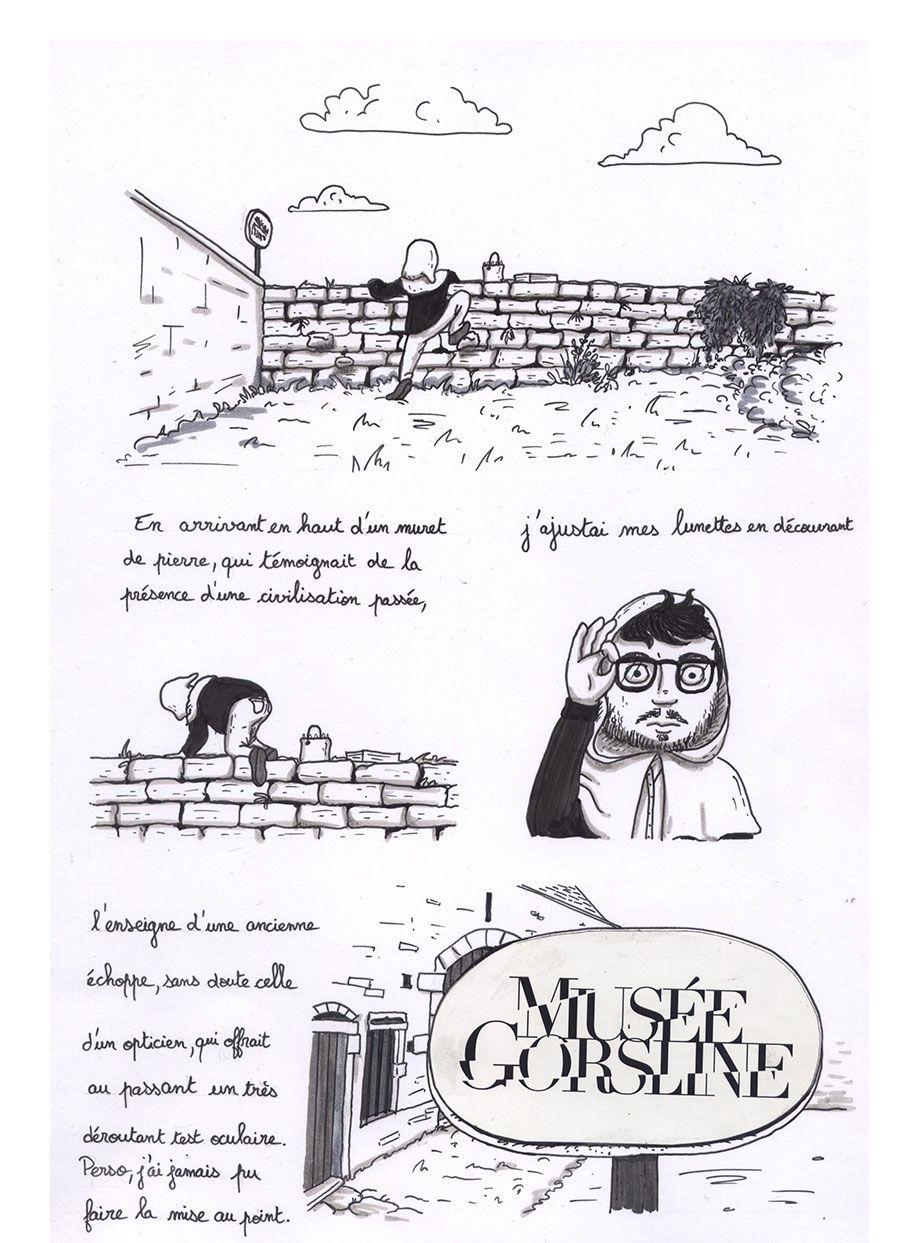 En arrivant en haut d'un muret
de pierre, qui témoignait de la
présence d'une civilisation passée,
j'ajustai mes lunettes en découvrant
l'enseigne d'une ancienne
échoppe, sans doute celle
d'un opticien, qui offrait
au passant un très
déroutant test oculaire.
Perso, j'ai jamais pu
faire la mise au point.
MUSÉE
GORSLINE